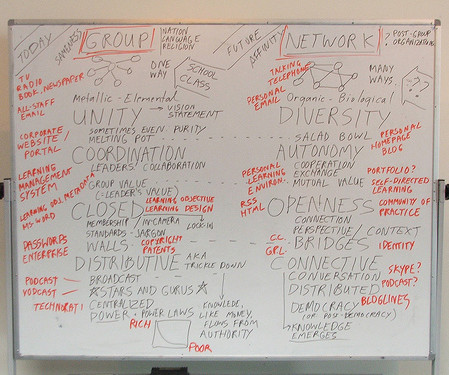 TODAY
SAMENESS
GROUP
NATION
LANGUAGE
RELIGION
FUTURE
AFFINITY
NETWORK
POST-GROUP
ORGANIZING
TV
RADIO
BOOK, NEWSPAPER
ALL-STAFF
EMAIL
ONE
WAY
SCHOOL
CLASS
TALKING
TELEPHONE
PERSONAL
EMAIL
MANY
WAYS
???
Metallic-Elemental
VISION
STATEMENT
UNITY
SOMETIMES EVEN PURITY
MELTING POT
Organic-Biological
DIVERSITY
SALAD BOWL
CORPORATE
WEBSITE/
PORTAL
PERSONAL
HOMEPAGE
BLOG
COORDINATION
LEADERS' COLLABORATION
AUTONOMY
COOPERATION
EXCHANGE
MUTUAL VALUE
LEARNING
MANAGEMENT
SYSTEM
PERSONAL
LEARNING
ENVIRON.
PORTFOLIO?
SELF-DIRECTED
LEARNING
GROUP VALUE
(=LEADER'S VALUE)
LEARNING OBJ. METADATA
MS-WORD
CLOSED
LEARNING OBJECTIVE
LEARNING DESIGN
MEMBERSHIP/IN-CAMERA
STANDARDS-JARGON
LOCK-IN
RSS
HTML
OPENNESS
CONNECTION
PERSPECTIVE/CONTEXT
COMMUNITY OF
PRACTICE
PASSWORDS
ENTERPRISE
WALLS
COPYRIGHT
PATENTS
CC.
GPL.
BRIDGES
IDENTITY
DISTRIBUTIVE
A.K.A
TRICKLE DOWN
CONNECTIVE
CONVERSATION
SKYPE?
PODCAST
VODCAST
BROADCAST
STARS AND GURUS
DISTRIBUTED
PODCAST?
BLOGLINES
TECHNORATI
CENTRALIZED
POWER-POWER LAWS
KNOWLEDE,
LIKE MONEY,
FLOWS FROM
AUTHORITY
DEMOCRACY
(OR POST-DEMOCRACY)
KNOWLEDGE
EMERGES
RICH
POOR